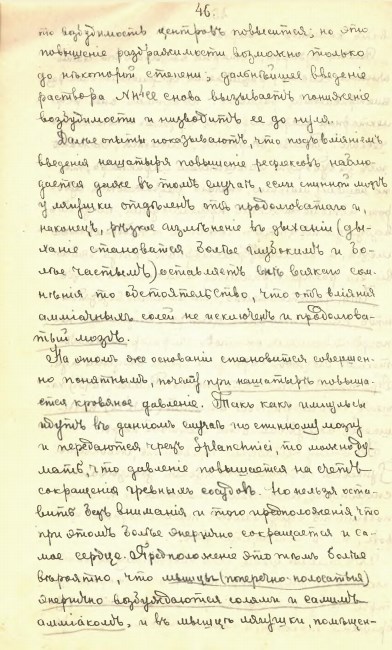 46.
то возбудимость центровъ повысится; но это
повышение раздражимости возможно только
до нѣкоторой степени; дальнѣйшее введение
раствора снова вызываетъ понижение
возбудимости и низводитъ ее до нуля.
Далѣе опыты показываютъ, что подъ влiянiемъ
введения нашатыря повышение рефлексовъ наблю-
дается даже въ томъ случаѣ, если спинной мозгъ
у лягушки отдѣленъ отъ продолговатаго и,
наконецъ, рѣзкое измѣнение въ дыхании (ды-
хание становится болѣе глубокимъ и бо-
лѣе частымъ) оставляетъ внѣ всякаго сом-
нѣния то обстоятельство, что отъ влияния
аммiачныхъ солей не исключенъ и продолгова-
тый мозгъ.
На этомъ же основании становится совершен-
но понятнымъ, почему при нашатырѣ повыша-
ется кровяное давление. Такъ какъ импульсы
идутъ въ данномъ случаѣ по спинному мозгу
и передаются чрезъ Splanchnici, то можно ду-
мать, что давление повышается на счетъ
сокращения чревныхъ сосудовъ. Но нельзя оста-
вить безъ внимания и того предположения, что
при этомъ болѣе энергично сокращается и са-
мое сердце. Предположение это тѣмъ болѣе
вѣроятно, что мышцы (поперечно-полосатыя)
энергично возбуждаются солями и самимъ
аммiакомъ, и въ мышцѣ лягушки, помѣщен-